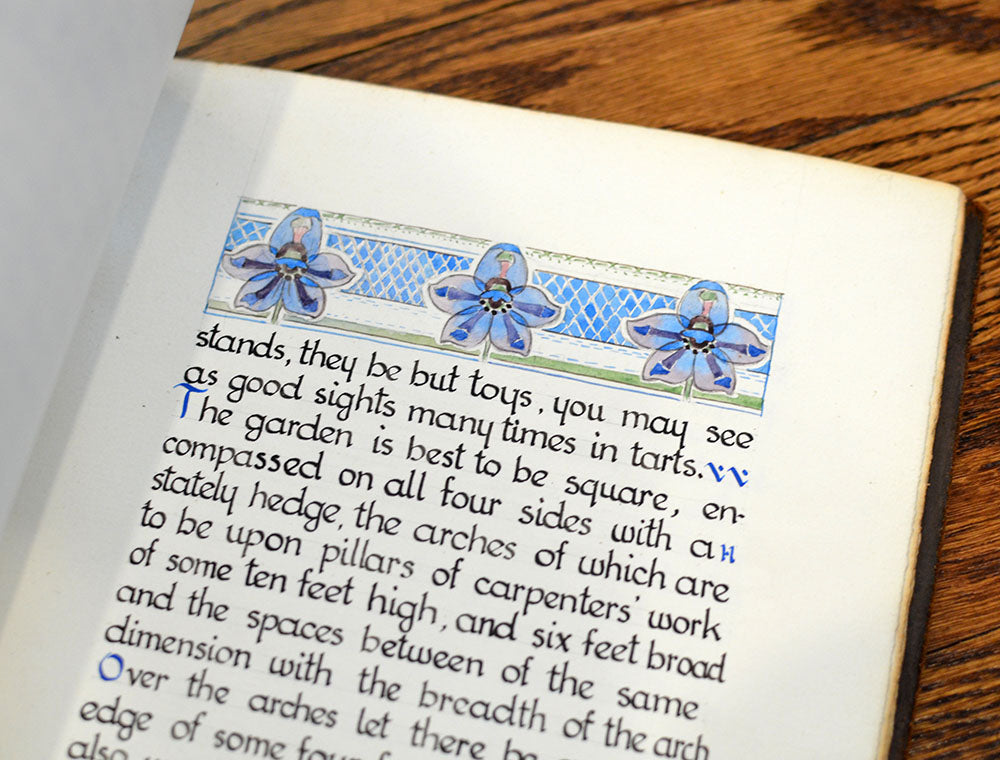 stands, they be but toys, you may see
as good sights many times in tarts.
The garden is best to be square, en-
compassed on all four sides with a
stately hedge, the arches of which are
to be upon pillars of carpenters' work
of some ten feet high, and six feet broad
and the spaces between of the same
dimension with the breadth of the arch
Over the arches let there be
edge of some four
also